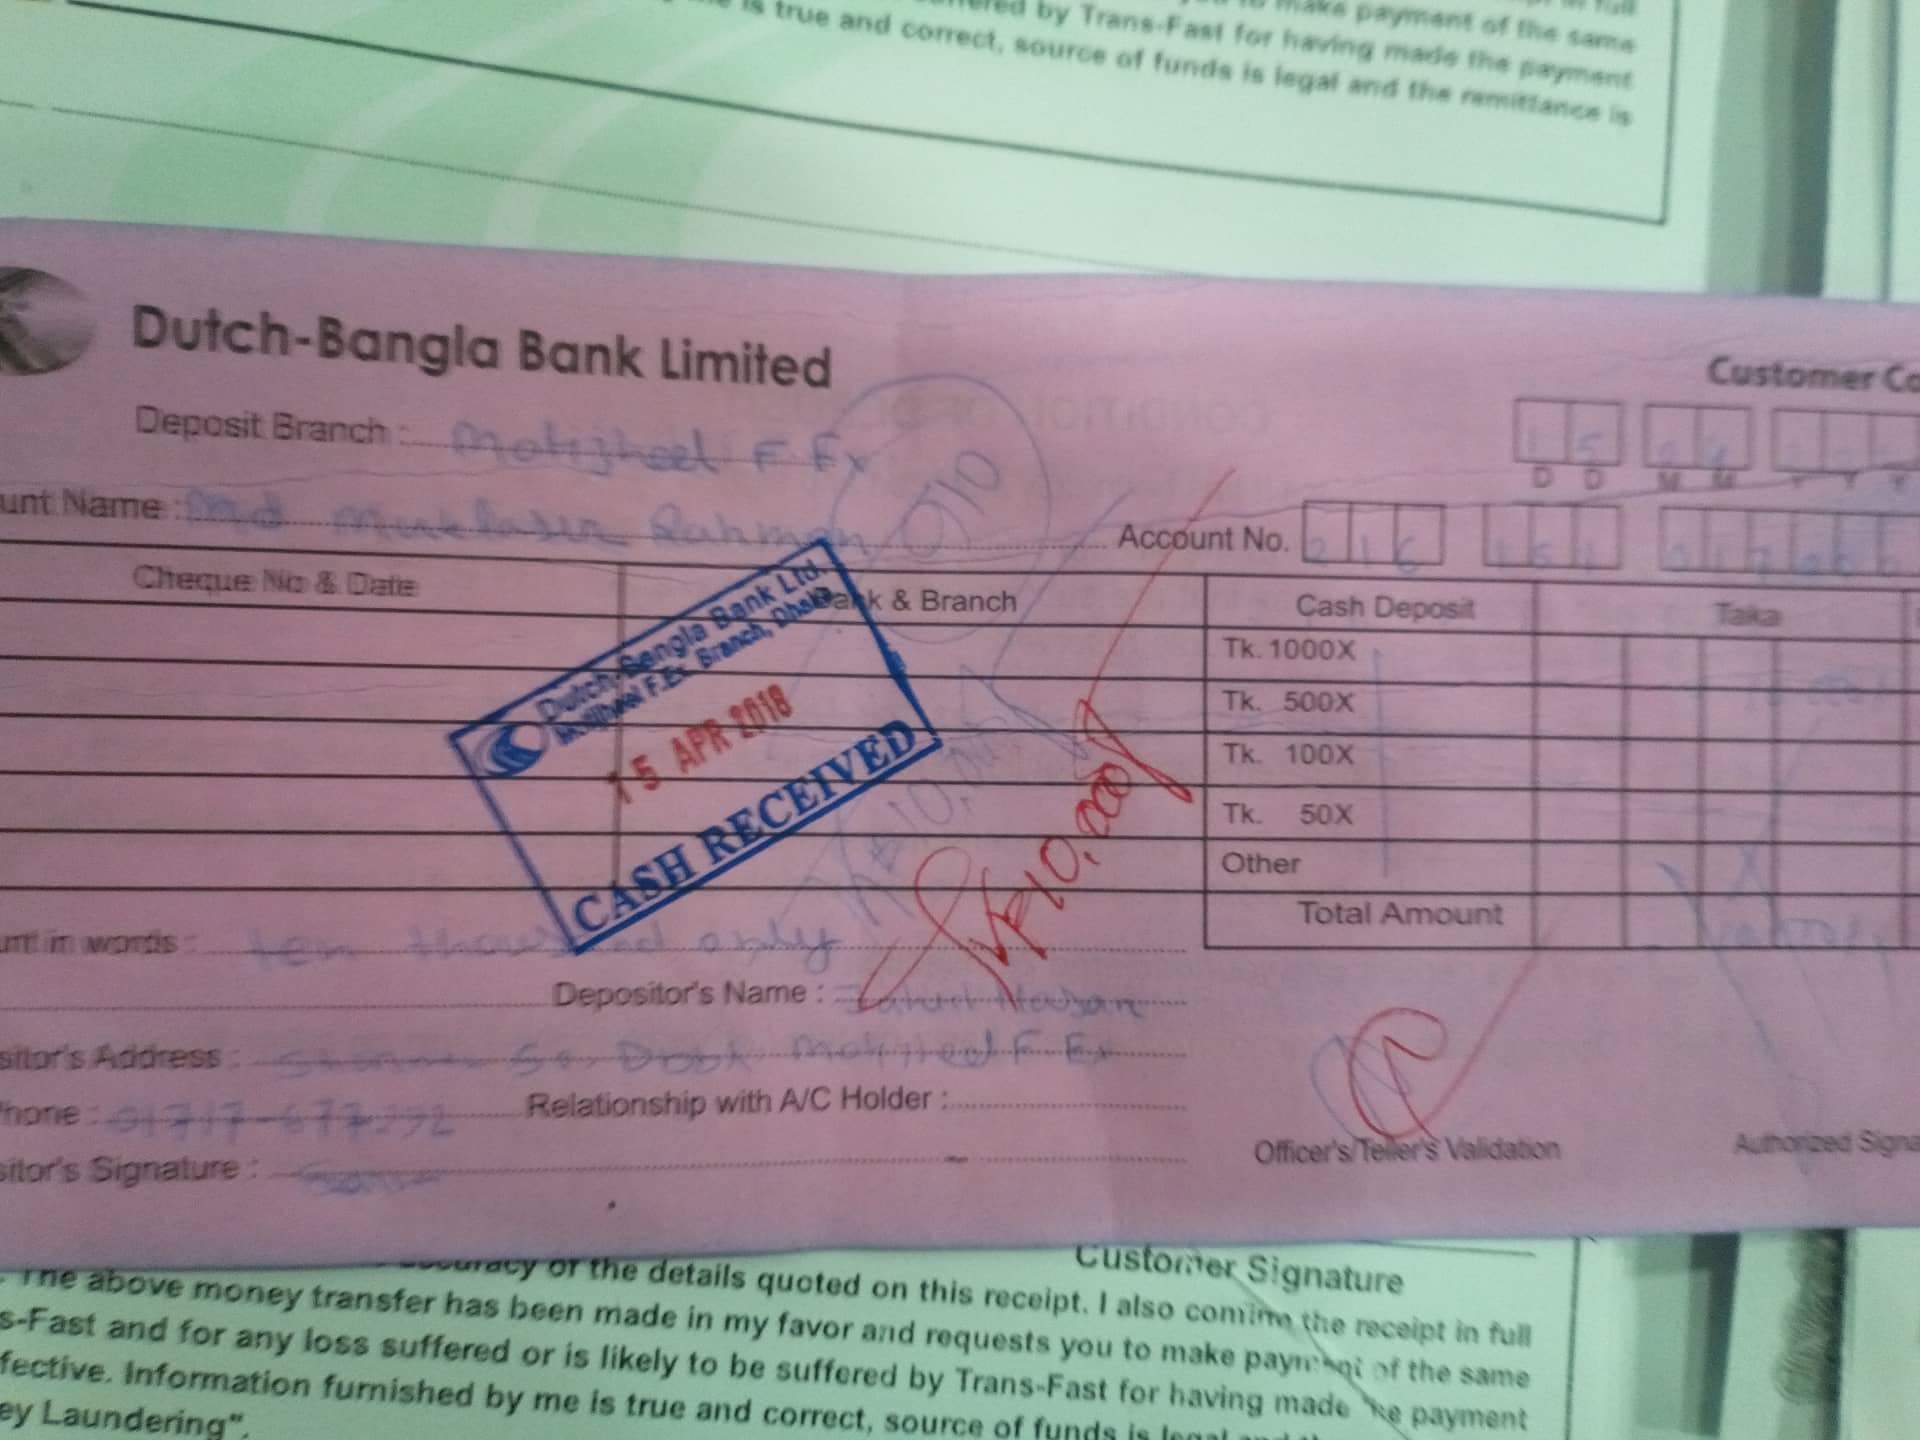 make payment of the same
by Trans-Fast for having made the payment
is true and correct, source of funds is legal and the remittance is
Dutch-Bangla Bank Limited
Customer Co
Deposit Branch : Motijheel F Ex
010
D D M M Y Y Y
unt Name : Md Rahman
Account No. 216 151
Cheque No & Date
Bank & Branch
Cash Deposit
Taka
Tk. 1000X
Tk. 500X
Tk. 100X
Tk. 50X
Other
Total Amount
Dutch-Bangla Bank Ltd.
Motijheel F.Ex. Branch, Dhaka
15 APR 2018
CASH RECEIVED
Tk 10,000/
unt in words : ten thousand only
Depositor's Name : Hasan
sitor's Address : Motijheel F Ex
hone : 01717-677292
Relationship with A/C Holder :
sitor's Signature :
Officer's/Teller's Validation
Authorized Signa
Customer Signature
accuracy of the details quoted on this receipt. I also the receipt in full
The above money transfer has been made in my favor and requests you to make payment of the same
s-Fast and for any loss suffered or is likely to be suffered by Trans-Fast for having made the payment
fective. Information furnished by me is true and correct, source of funds is legal and
ey Laundering".